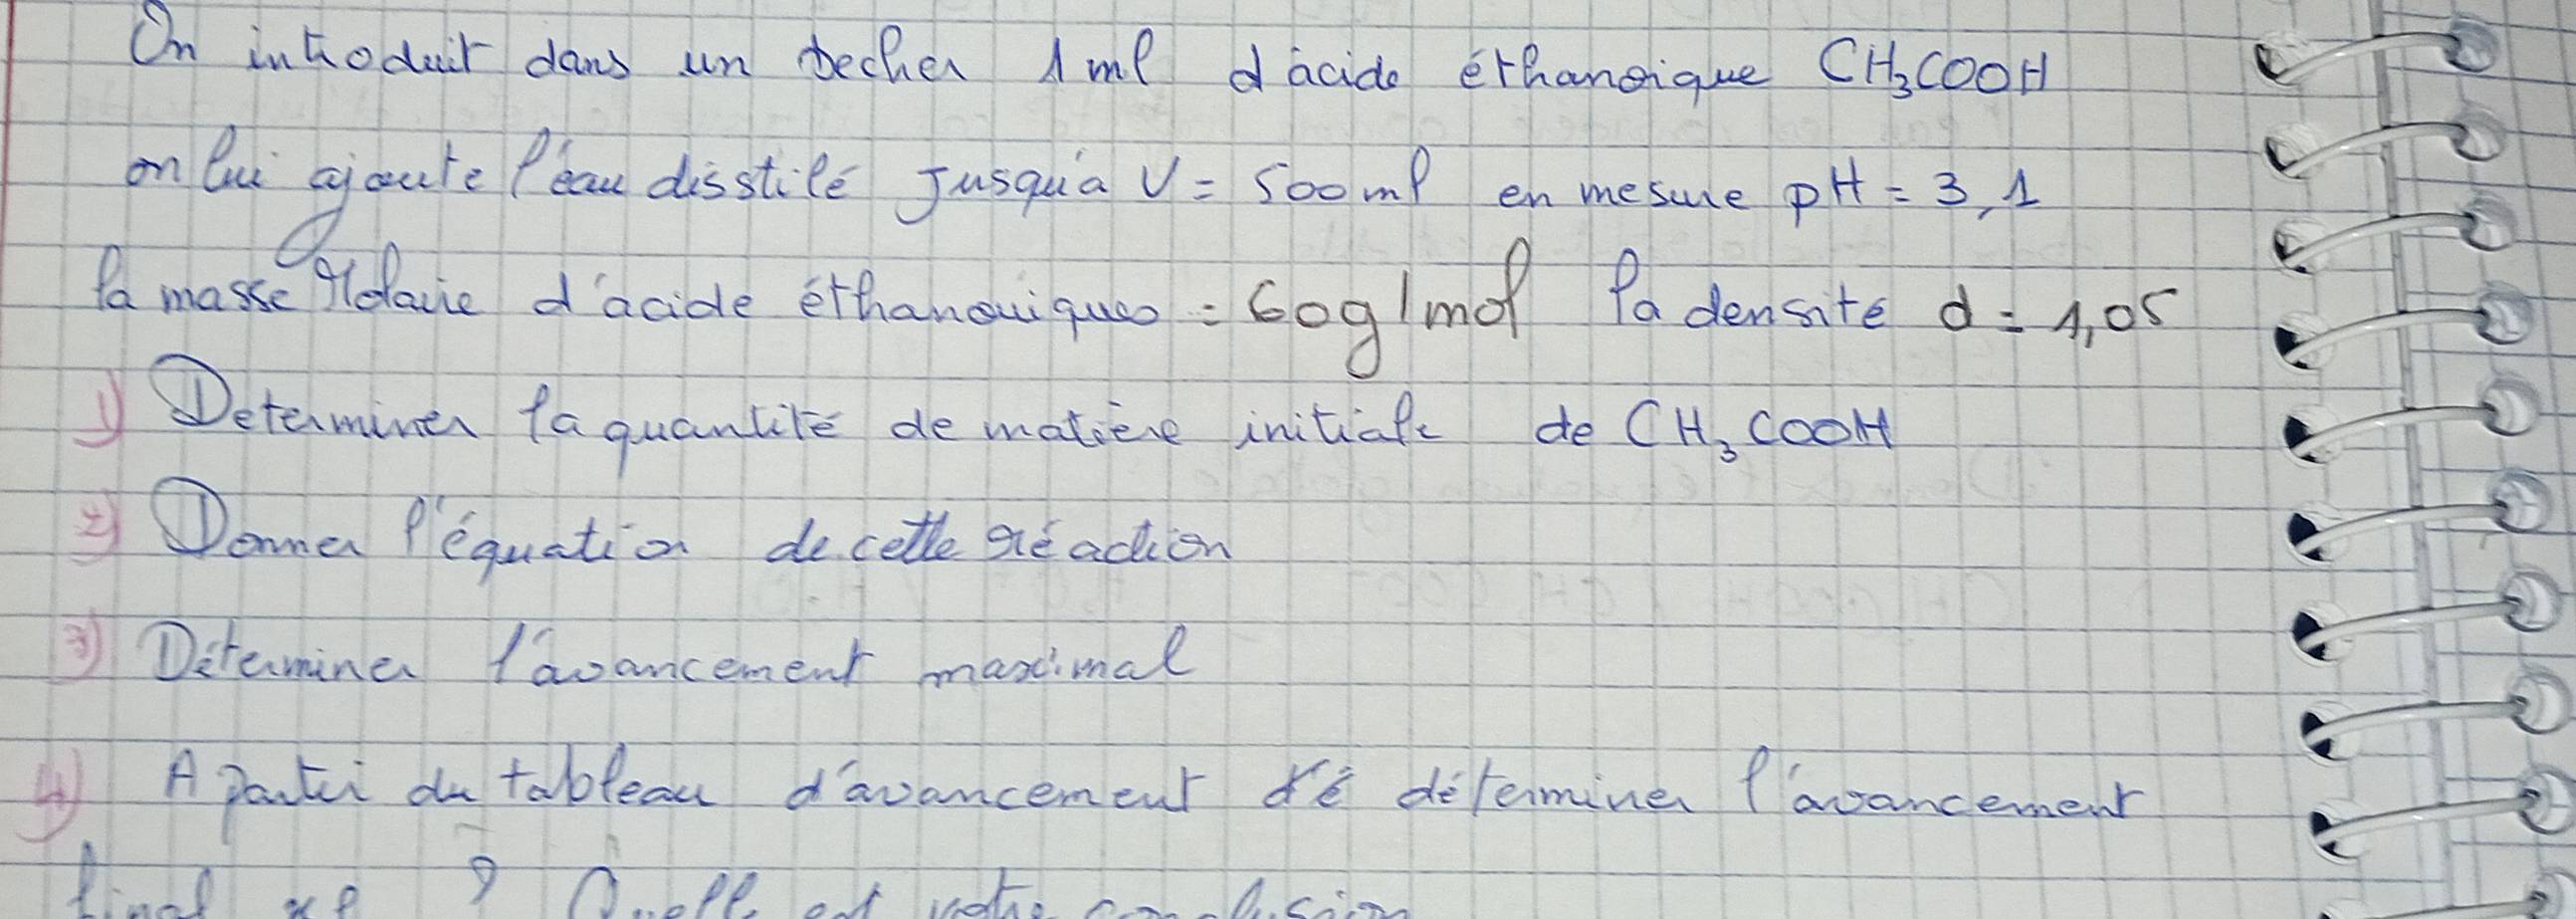 On introduit dans un becher 1 ml d'acide éthanoique CH₃COOH
on lui ajoute l'eau disstilé Jusqu'a V = 500 ml en mesure pH = 3,1
la masse Molaire d'acide éthanouiques = 60g/mol la densité d = 1,05
1) Determiner la quantité de matière initiale de CH₃COOH
2) Donner l'équation de cette réaction
3) Determiner l'avancement maximal
4) A partir du tableau d'avancement déterminer l'avancement
final xf ? Quelle est votre conclusion